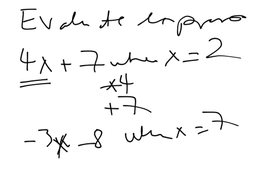 Evaluate expression
4x + 7 when x = 2
x4
+7
-3x - 8 when x = 7